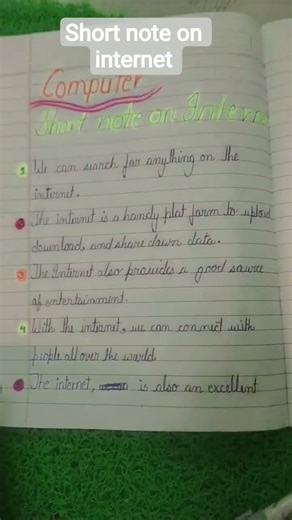 Short note on
internet
Computer
Short note on Interne
1 We can search for anything on the
internet.
2 The internet is a handy plat farm to upload
download, and share dawn data.
3 The Internet also provides a good saurce
of entertainment.
4 With the internet, we can connect with
people all over the warld.
5 The internet, is also an excellent